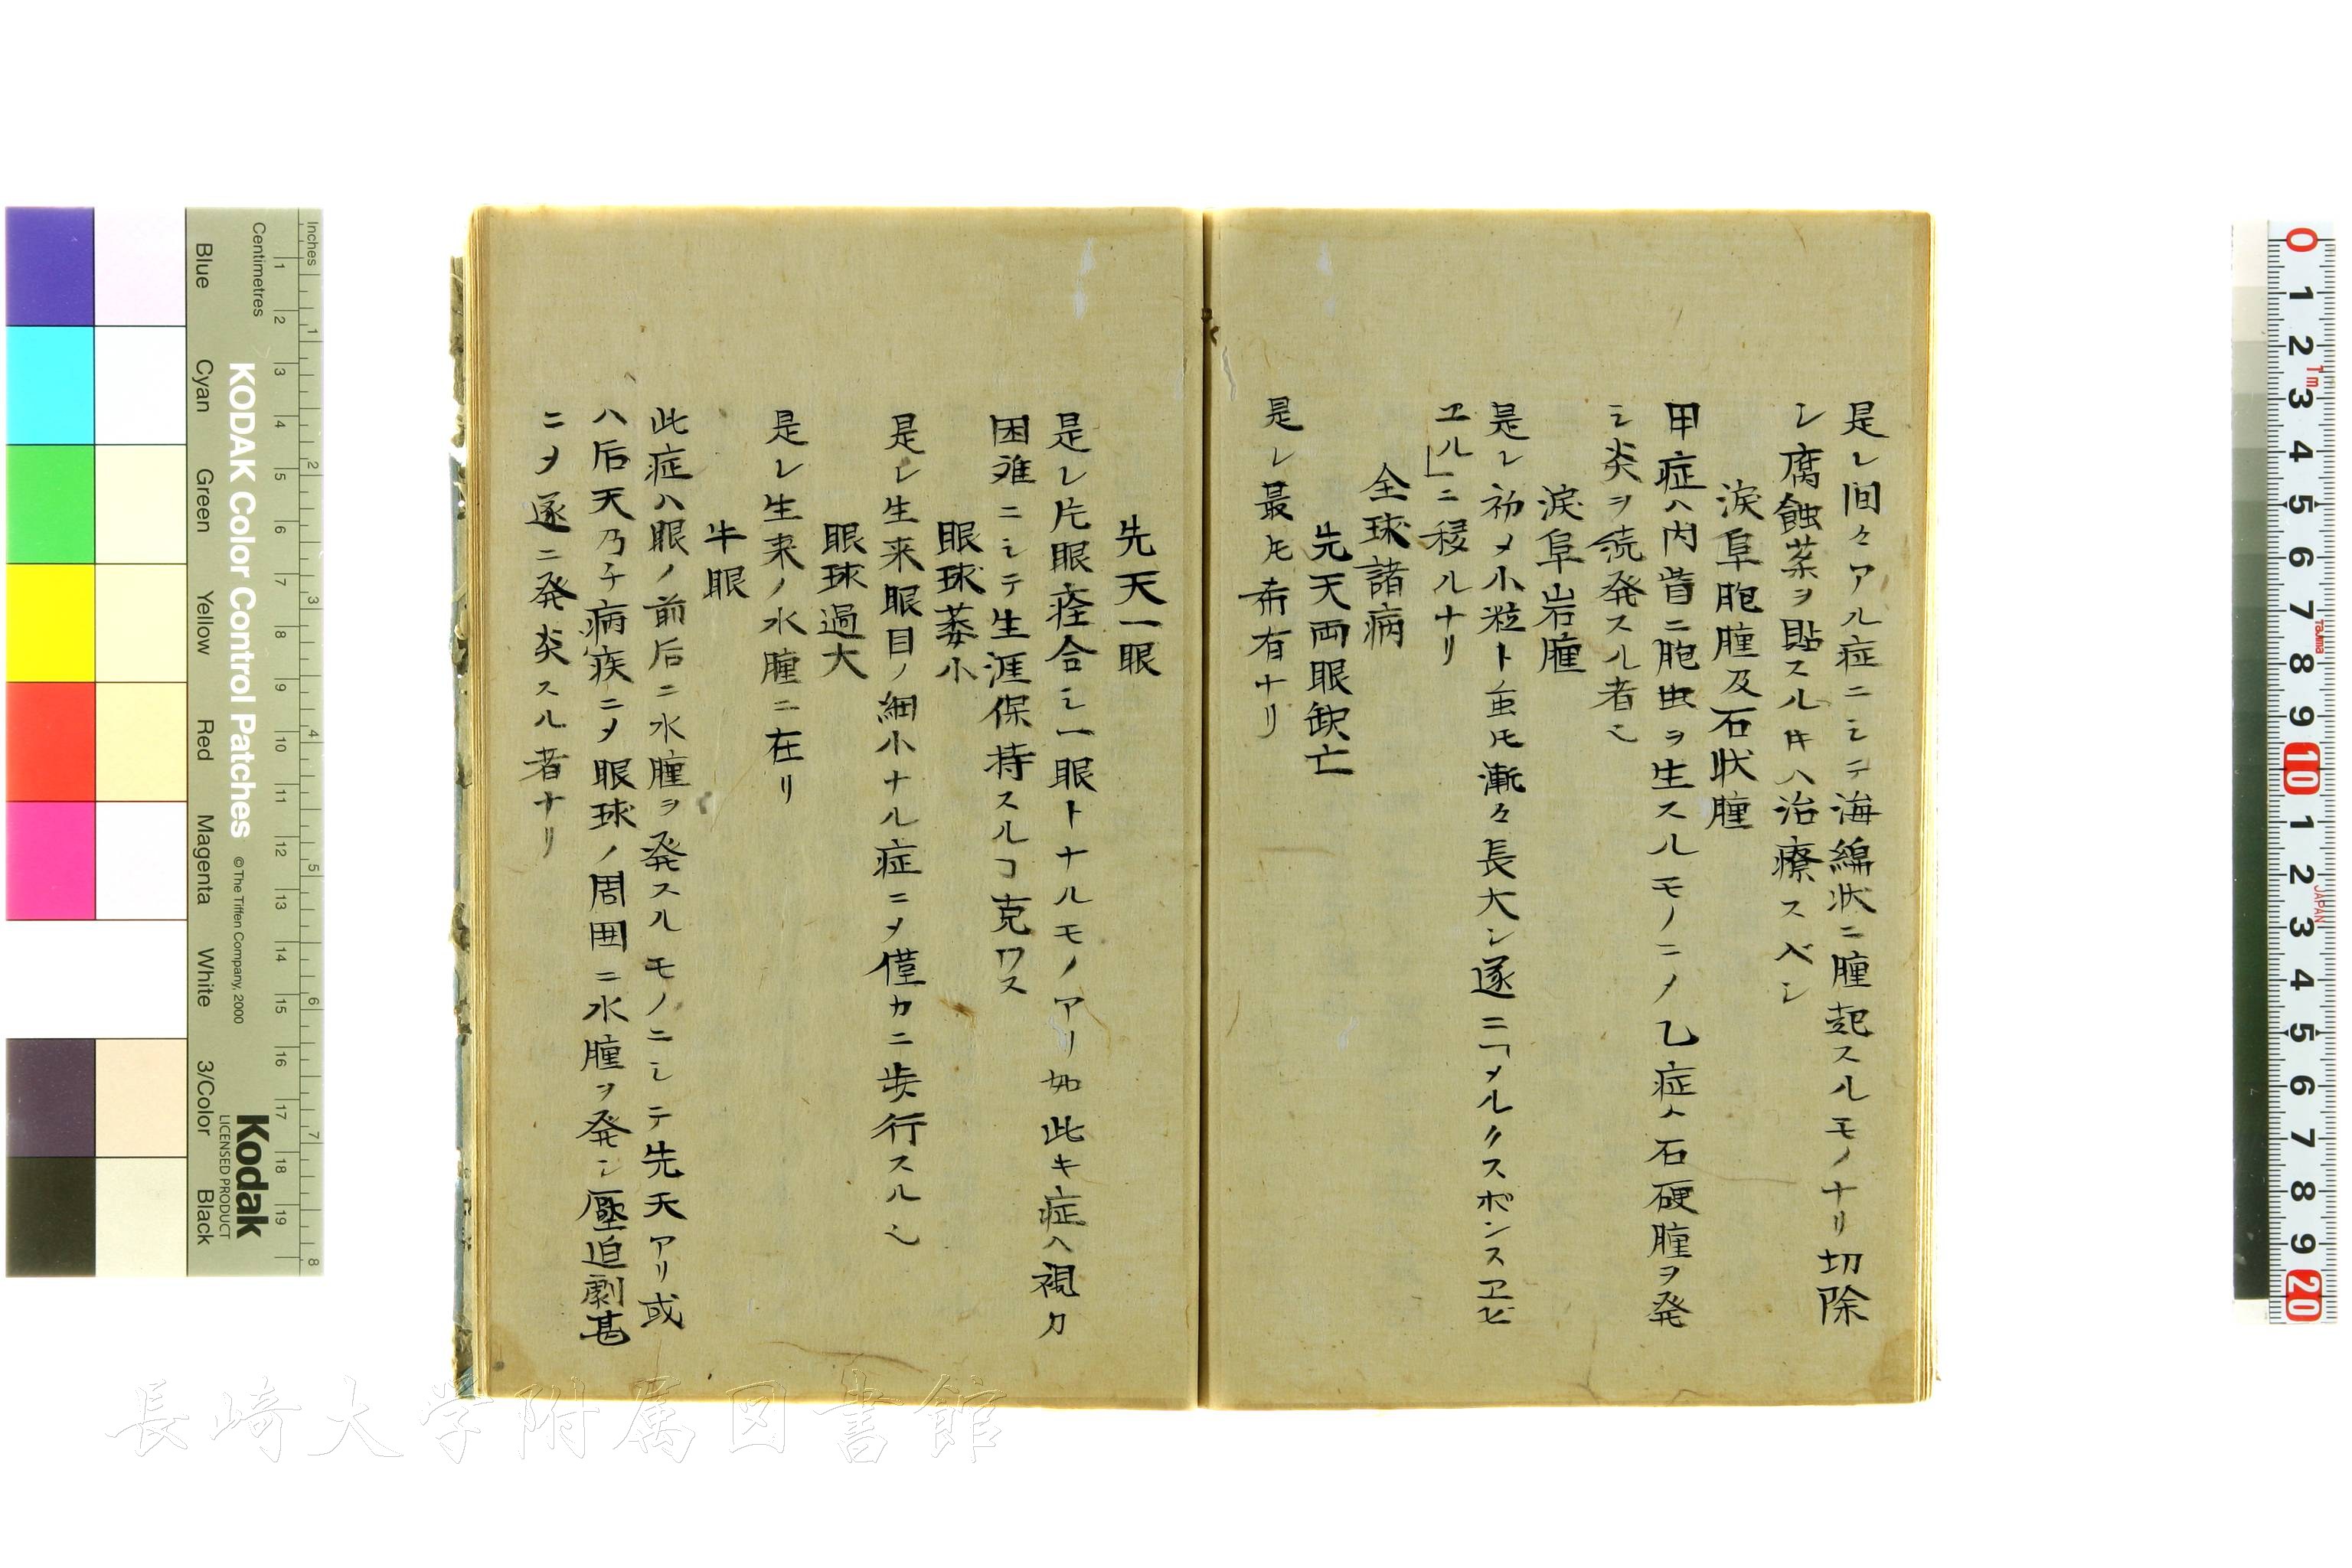 是レ間々アル症ニシテ海綿状ニ腫起スルモノナリ切除
シ腐蝕薬ヲ貼スル𪜈ハ治療スベシ
涙阜胞腫及石状腫
甲症ハ内眥ニ胞虫ヲ生スルモノニ〆乙症ハ石硬腫ヲ発
シ炎ヲ続発スル者也
涙阜岩腫
是レ初メ小粒ト虽𪜈漸々長大シ遂ニ「メルクスポンスヱビ
ヱル」ニ移ルナリ
全球諸病
先天両眼欽亡
是レ最𪜈希有ナリ
先天一眼
是レ片眼痊合シ一眼トナルモノアリ如此キ症ハ視力
困难ニシテ生涯保持スルヿ克ワス
眼球萎小
是レ生来眼目ノ細小ナル症ニ〆僅カニ歩行スル也
眼球過大
是レ生来ノ水腫ニ在リ
牛眼
此症ハ眼ノ前后ニ水腫ヲ発スルモノニシテ先天アリ或
ハ后天乃チ病疾ニ〆眼球ノ周囲ニ水腫ヲ発シ壓迫劇甚
ニ〆遂ニ発炎スル者ナリ
長崎大学附属図書館
Inches
Centimetres
KODAK Color Control Patches
© The Tiffen Company, 2000
Kodak
LICENSED PRODUCT
Blue
Cyan
Green
Yellow
Red
Magenta
White
3/Color
Black
1 2 3 4 5 6 7 8
1 2 3 4 5 6 7 8 9 10 11 12 13 14 15 16 17 18 19
0 1 2 3 4 5 6 7 8 9 10 1 2 3 4 5 6 7 8 9 20
1m
Tajima
JAPAN